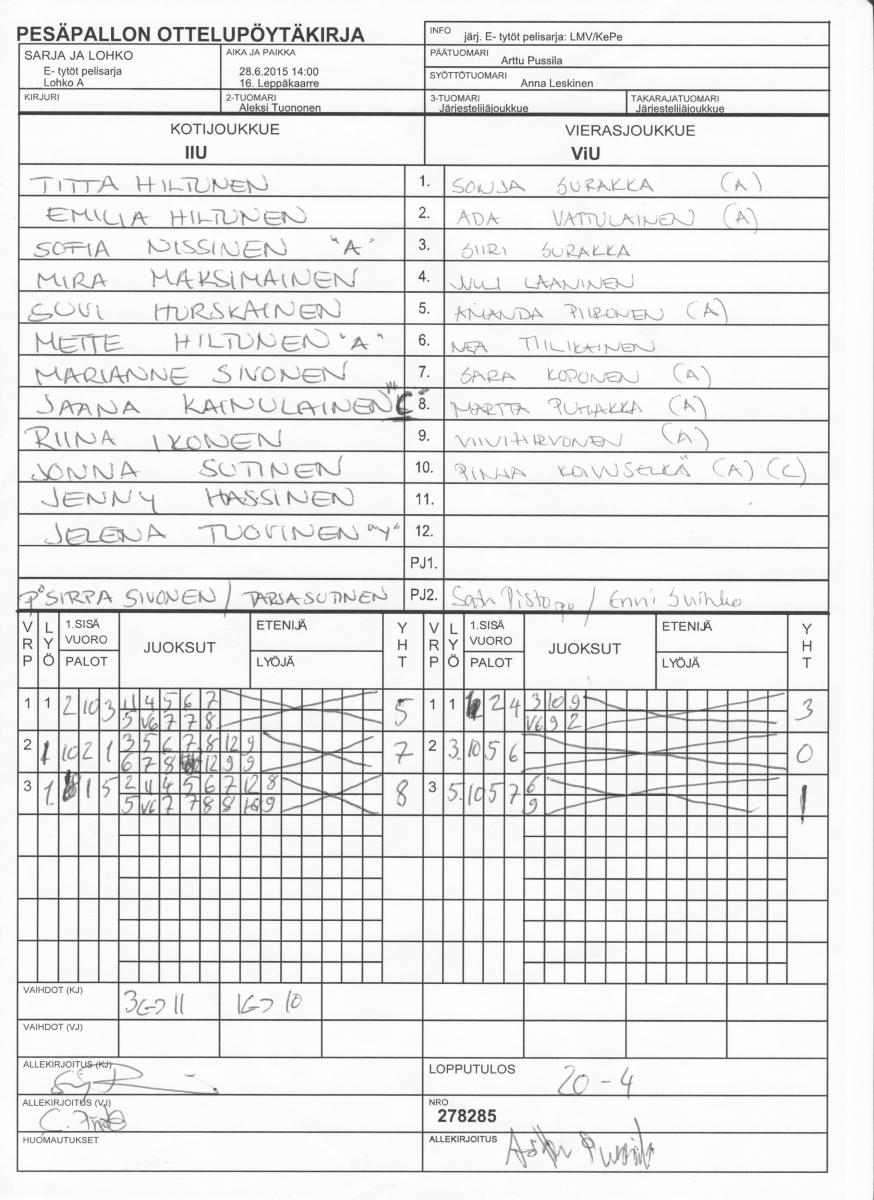 PESÄPALLON OTTELUPÖYTÄKIRJA
INFO järj. E- tytöt pelisarja: LMV/KePe
SARJA JA LOHKO
E- tytöt pelisarja
Lohko A
AIKA JA PAIKKA
28.6.2015 14:00
16. Leppäkaarre
PÄÄTUOMARI Arttu Pussila
SYÖTTÖTUOMARI Anna Leskinen
KIRJURI
2-TUOMARI
Aleksi Tuononen
3-TUOMARI
Järjestelijäjoukkue
TAKARAJATUOMARI
Järjestelijäjoukkue
KOTIJOUKKUE
IIU
VIERASJOUKKUE
ViU
TITTA HILTUNEN 1. SONJA SURAKKA (A)
EMILIA HILTUNEN 2. ADA VATTULAINEN (A)
SOFIA NISSINEN "A" 3. SIIRI SURAKKA
MIRA MAKSIMAINEN 4. JULI LAANINEN
SUVI HURSKAINEN 5. AMANDA PIIRONEN (A)
METTE HILTUNEN "A" 6. NEA TIILIKAINEN
MARIANNE SIVONEN 7. SARA KOPONEN (A)
JAANA KAINULAINEN "C" 8. MARTTA PUHAKKA (A)
RIINA IKONEN 9. VIIVI HIRVONEN (A)
JONNA SUTINEN 10. PINJA KOIVUSELKÄ (A) (C)
JENNY HASSINEN 11.
JELENA TUOVINEN "Y" 12.
PJ1.
SIRPA SIVONEN / TARJA SUTINEN PJ2. / Enni
VRP LYÖ 1.SISÄ VUORO PALOT JUOKSUT ETENIJÄ LYÖJÄ YHT VRP LYÖ 1.SISÄ VUORO PALOT JUOKSUT ETENIJÄ LYÖJÄ YHT
1 1 2 10 3 11 4 5 6 7 5 1 1 2 4 3 10 9 3
5 V6 7 7 8 V6 9 2
2 1 10 2 1 3 5 6 7 8 12 9 7 2 3. 10 5 6 0
6 7 8 12 9 9
3 1. 1 5 2 11 4 5 6 7 12 8 8 3 5. 10 5 7 6 1
5 V6 7 7 8 8 9 9
VAIHDOT (KJ) 3<-> 11 1<-> 10
VAIHDOT (VJ)
ALLEKIRJOITUS (KJ)
LOPPUTULOS 20 - 4
ALLEKIRJOITUS (VJ)
NRO
278285
HUOMAUTUKSET
ALLEKIRJOITUS